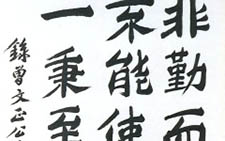 非勤而
不能使
一秉至
錄曾文正公